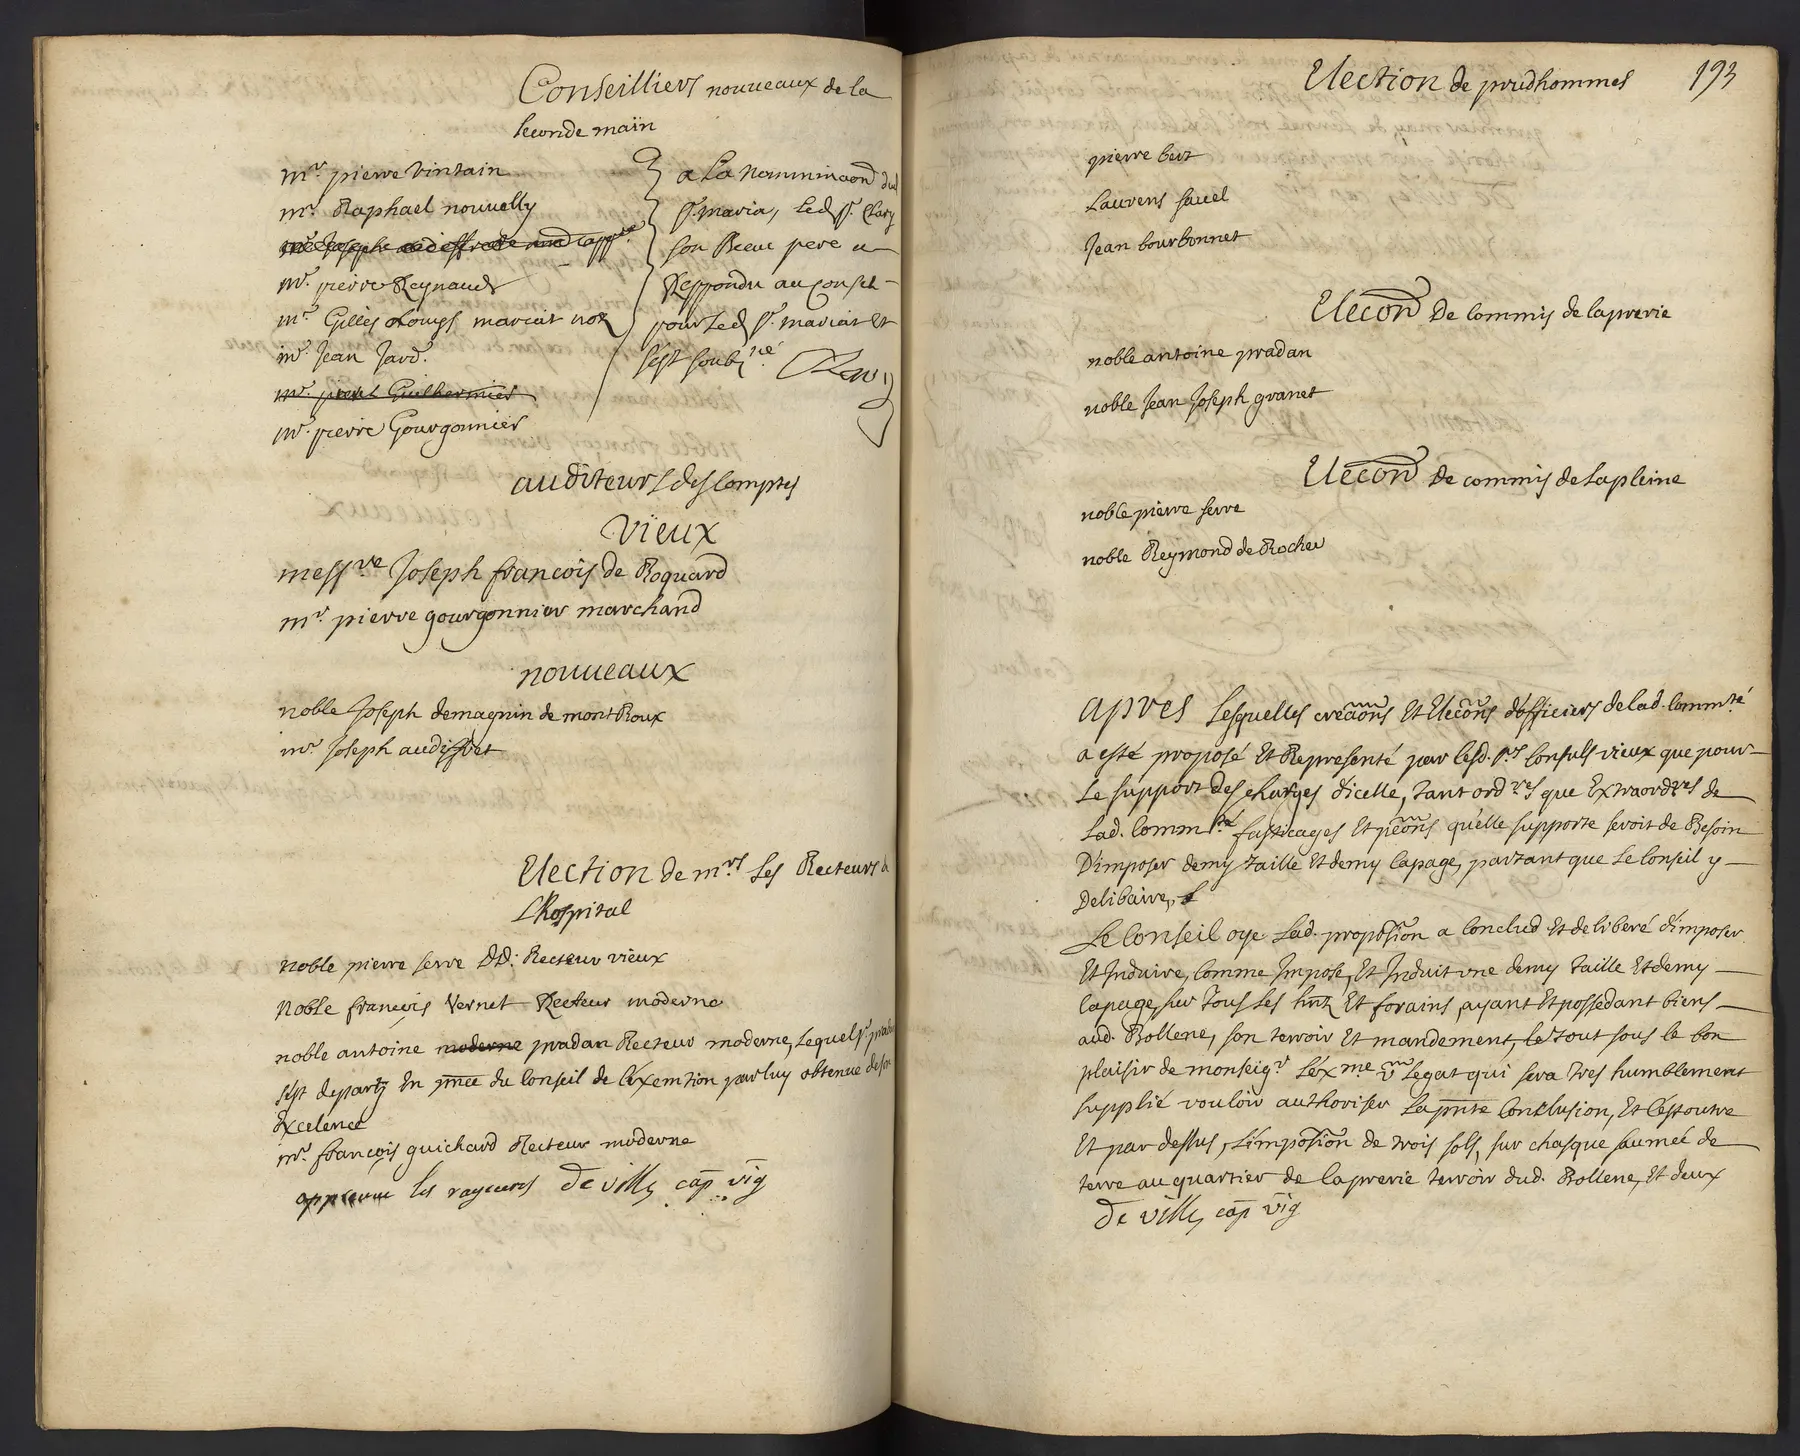 Conseilliers nouveaux de la
seconde main
mr. pierre vintain
mr. Raphael nouvelly
mr. pierre Reynaud
mr. Gilles Louys mariat nore
mr. Jean Jard.
mr. pierre Guilhermier
mr. pierre Gourgonnier
a La nominaaon dud
sr. maria, Led sr. Clary
son Beau pere a
Respondu au conseil
pour Led sr. mariat Et
s'est soubzné.
auditeurs des comptes
vieux
messre Joseph francois de Roquard
mr pierre gourgonnier marchand
nouveaux
noble Joseph demagnin de mont Roux
mr. Joseph audiffret
Election de mrs Les Recteurs d
L'hospital
noble pierre serre DD: Recteur vieux
Noble françois Vernet Recteur moderne
noble antoine moderne pradan Recteur moderne, Lequel sr. pradan
s'est departy En pnce du Conseil de l'exemtion par luy obtenue de son
Excelence
mr. françois guichard Recteur moderne
les rayeures De villy cap vig
Election de prudhommes 193
pierre bert
Laurens savel
Jean bourbonnet
Elecon De commis de la prerie
noble antoine pradan
noble Jean Joseph granet
Elecon De commis de La pleine
noble pierre serre
noble Reymond de Rocher
apres Lesquelles creaons Et Elecons d'officiers de lad. Commté
a esté proposé Et Representé par lesd. srs Consuls vieux que pour
Le support des charges d'icelle, tant ordres que Extraordres de
Lad. Commté fasticages Et peons qu'elle supporte seroit de Besoin
D'imposer demy taille Et demy capage, partant que Le Conseil y
Delibaire,
Le Conseil oye Lad. proposion a Conclud Et deliberé d'imposer
Et Induire, Comme Impose, Et Induit une demy taille Et demy
capage, sur tous Les hnz Et forains, ayant Et possedant biens
aud. Bollene, son terroir Et mandement, le tout sous le bon
plaisir de monseigr L'exme vm Legat qui sera tres humblement
supplié vouloir authoriser La pnte Conclusion, Et C'est outre
Et par dessus, L'imposion de trois sols, sur chasque saumée de
terre au quartier de la prerie terroir dud. Bollene, Et deux
De villy cap vig